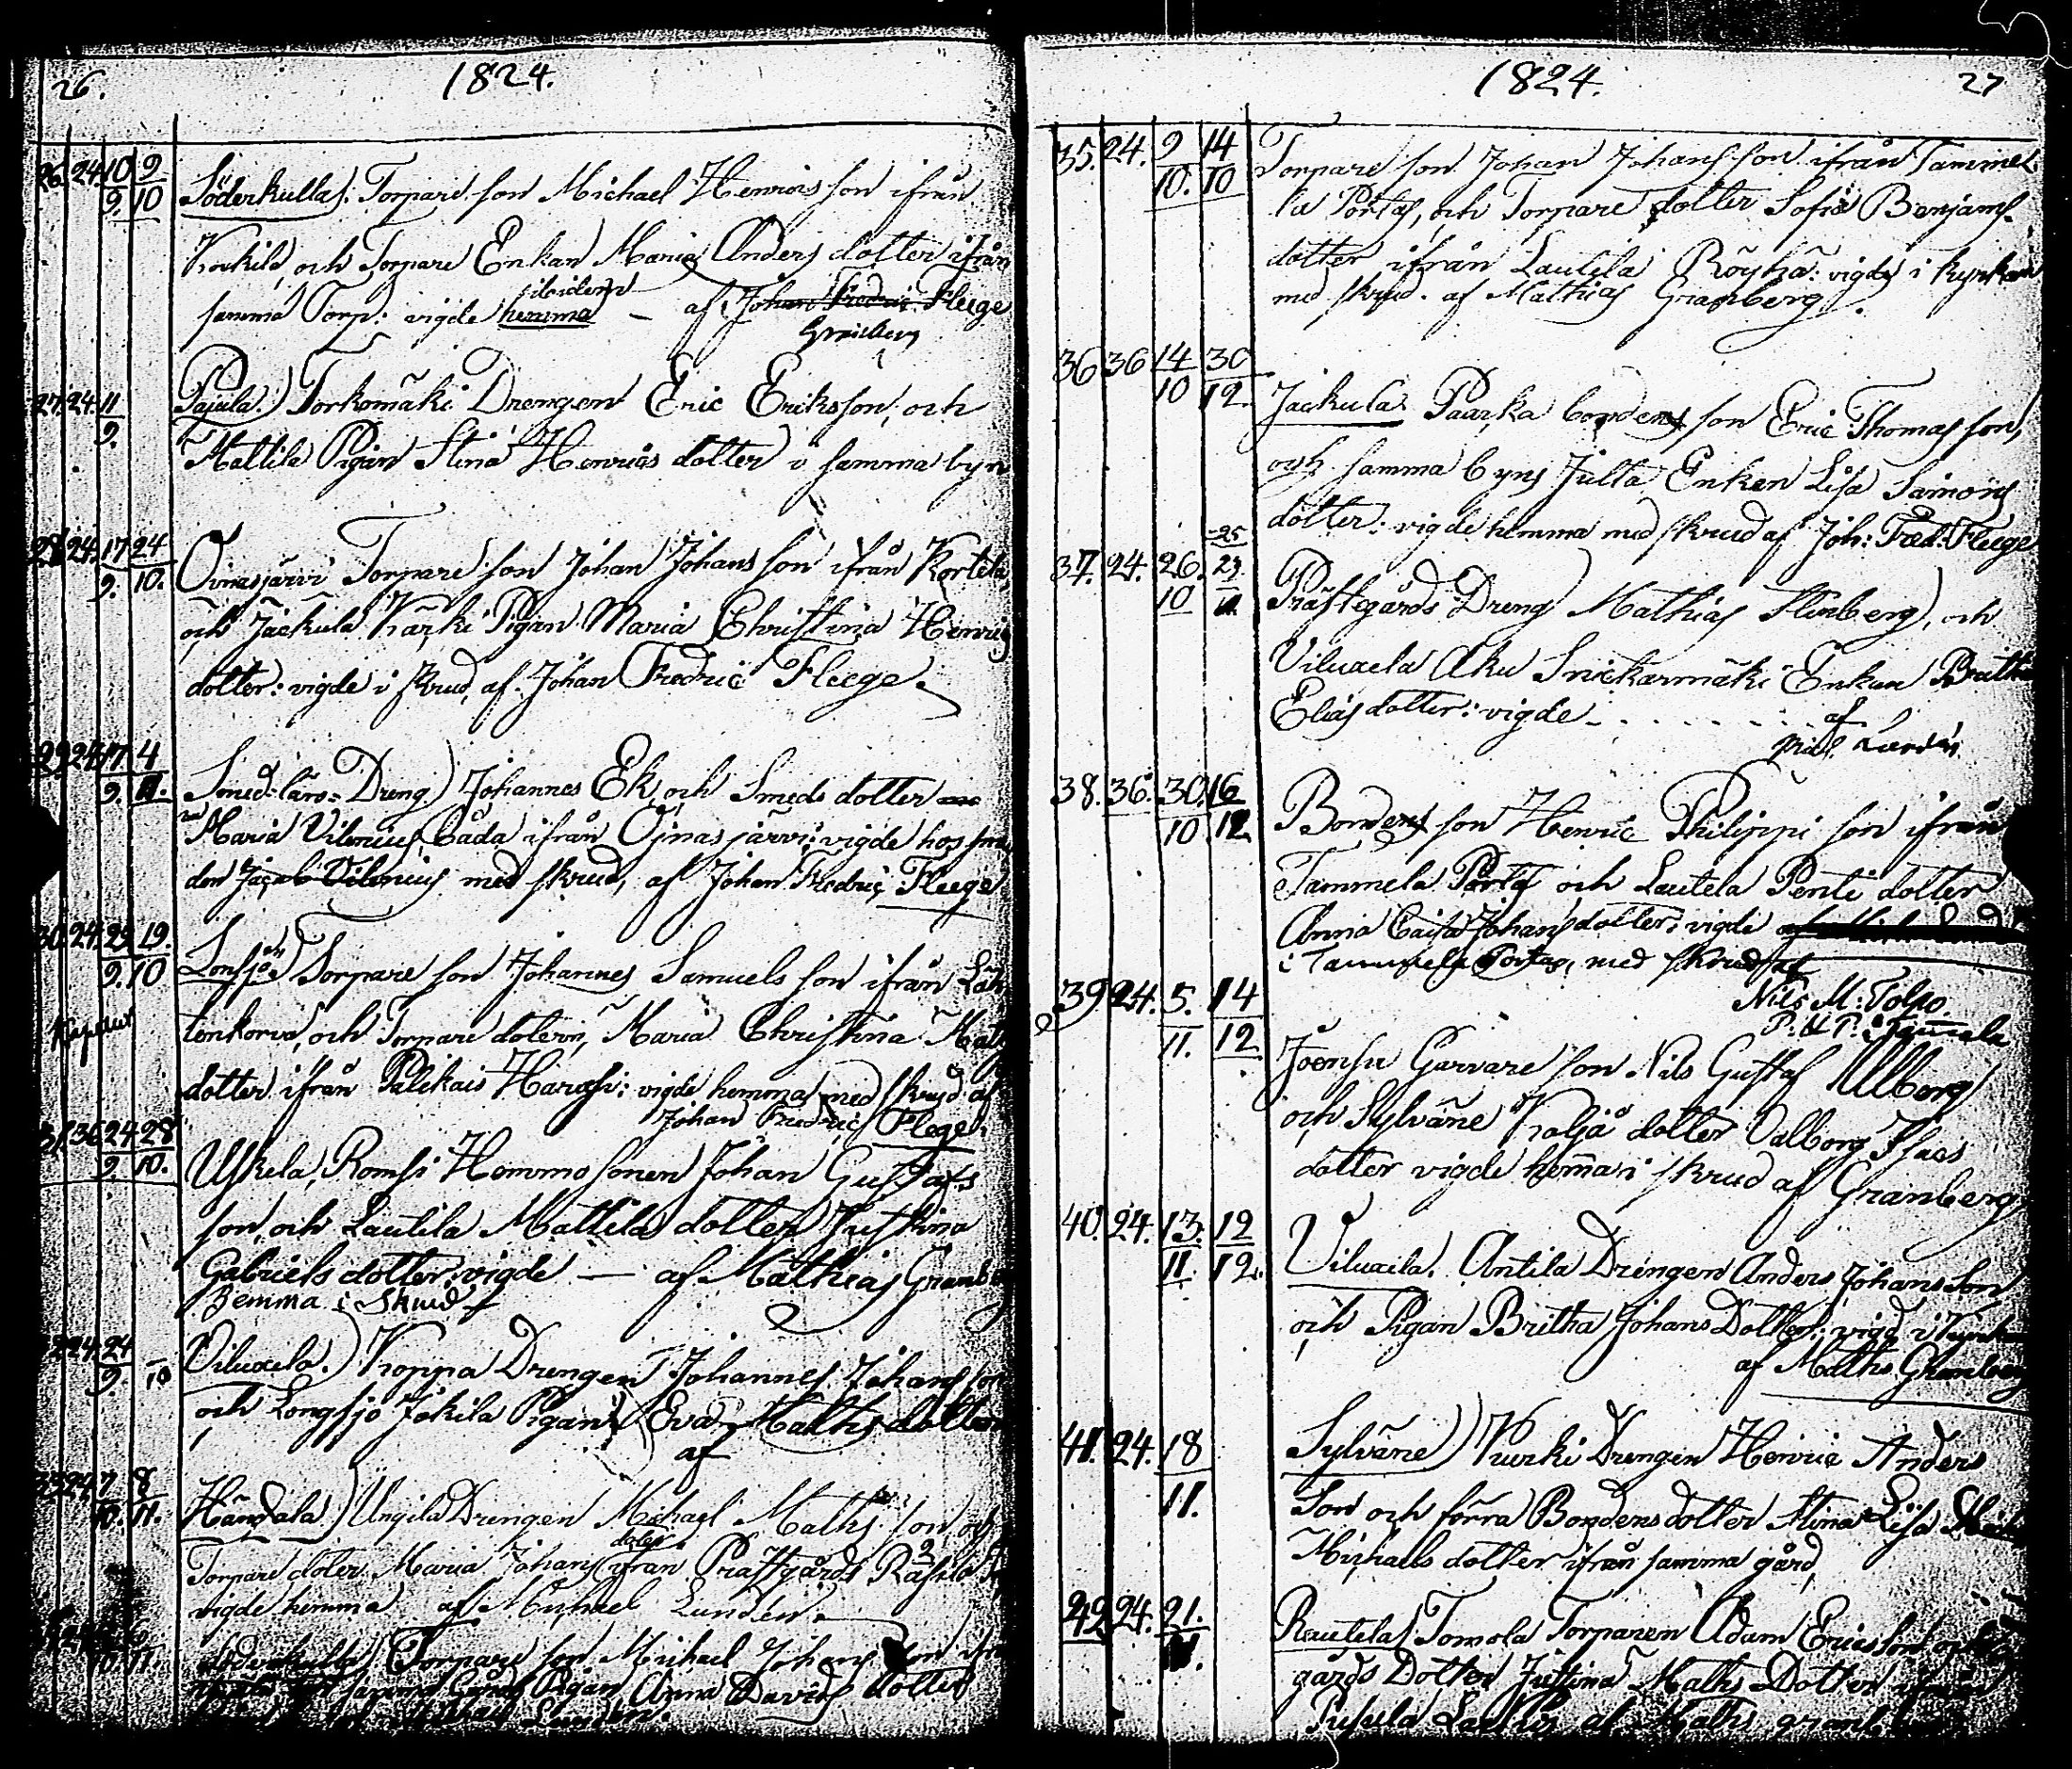 26.
1824.
26. 24. 10/9 9/10
Söderkulla: Torpare son Michael Henrics son ifrån
Korkila, och Torpare Enkan Maria Anders dotter ifrån
samma Torp: vigde hemma — af Johan Fredric Fleege
Granberg
27. 24. 11/9.
Pajula.) Torkomäki Drengen Eric Eriksson, och
Mattila Pigan Stina Henrics dotter i samma byn
28 24. 17/9. 24/10.
Oinasjärvi Torpare son Johan Johans son ifrån Kortela
och Jackula Karki Pigan Maria Christina Henrics
dotter: vigde i skrud, af Johan Fredric Fleege.
29 24 17/9. 4/11.
Smed-läro-Dreng) Johannes Ek, och Smeds dotter
Maria Vilenius, båda ifrån Ojnasjärvi: vigde hos sme
den Jacob Vilenius med skrud, af Johan Fredric Fleege
30. 24. 29/9. 19./10
Lonsjö) Torpare son Johannes Samuels son ifrån
tenkorva, och Torpare dotern, Maria Christina
dotter ifrån Palikais Harashi: vigde hemma med skrud af
Johan Fredric Flege.
31. 36 24/9. 28/10.
Uskela, Romsi Hemmo sonen Johan Gustafs
son, och Lautila Mattila dotter Justina
Gabriels dotter: vigde — af Mathias Granbe
hemma i skrud
32 24. 24/9. 10
Viluxela.) Koppa Drengen Johannes Johans son
och Longsjo Jokila Pigan Eva Maths dotter
af
33 24 7/10. 8/11.
Handala) Ungila Drengen Michael Maths son och
Torpare doter Maria Johans doter ifrån Prästgårds
vigde hemma af Michael Lundén.
Söderkulla) Torpare son Michael Johans son
Pigan Anna Davids dotter
1824.
27
35. 24. 9/10. 14/10
Torpare son Johan Johans son ifrån Tammel
la Portas, och Torpare dotter Sofia Benjams
dotter ifrån Lautila Röykä: vigde i kyrkan
med skrud. af Mathias Granberg.
36 36 14/10 30/12.
Jackula. Paarka bondens son Eric Thomas son,
och samma byns Julta Enken Lisa Saimons
dotter: vigde hemma med skrud af Joh: Fred: Fleege
37. 24. 26./10 25 23/11
Prästegårds Dreng Mathias Stenberg), och
Viluxela Aku Snickarmäki Enkan Britha
Elias dotter: vigde . . . . . . . . af
Mich. Lundén
38. 36. 30./10 16/12
Bondens son Henric Philippi son ifrån
Tammela Porta och Lautela Penti dotter
Anna Caisa Johans dotter; vigde
i Tammela Portas, med skrud af
Nils M: Tolpo.
P. & P. i Tammela
39. 24. 5./11. 14/12
Joensu Garvare son Nils Gustaf Allborg
och Sylväne Kolja dotter Valborg Isacs
dotter vigde hemma i skrud af Granberg
40. 24. 13./11. 12/12.
Viluxela. Antila Drengen Anders Johans Son
och Pigan Britha Johans Dotter: vigd i Kyrkan
af Maths Granberg
41. 24. 18/11.
Sylväne) Kurki Drengen Henric Anders
Son och förra Bondens dotter Stina Lisa
Michaels dotter ifrån samma gård,
42 24. 21./11.
Rautela) Tomola Torparen Adam Ericsson och
gårds Dotter Justina Maths Dotter
af Maths